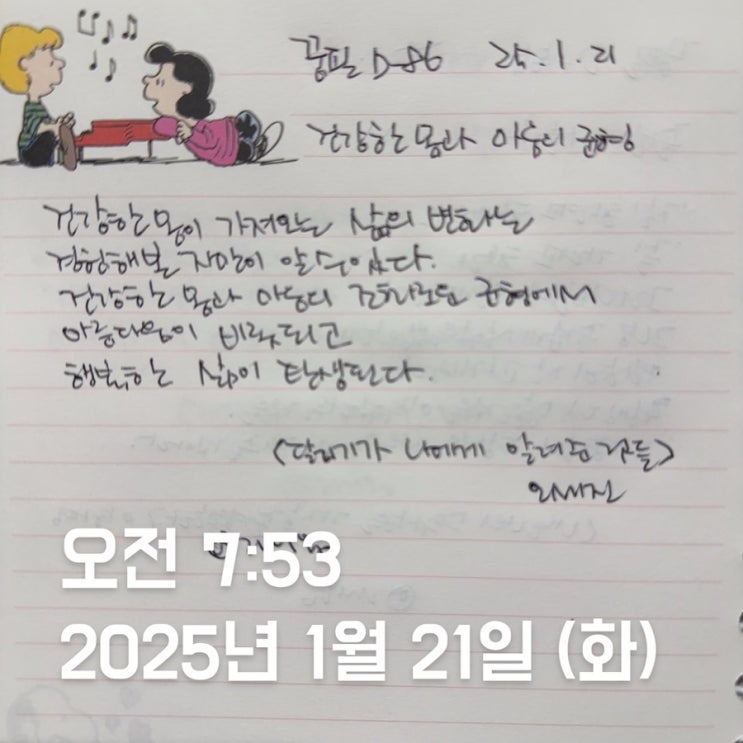 꿈필 D-86 25.1.21
건강한 몸과 마음의 균형
건강한 몸이 가져오는 삶의 변화는
경험해본 자만이 알 수 있다.
건강한 몸과 마음의 조화로운 균형에서
아름다움이 비롯되고
행복한 삶이 탄생된다.
<달리기가 나에게 알려준 것들>
오세진
오전 7:53
2025년 1월 21일 (화)